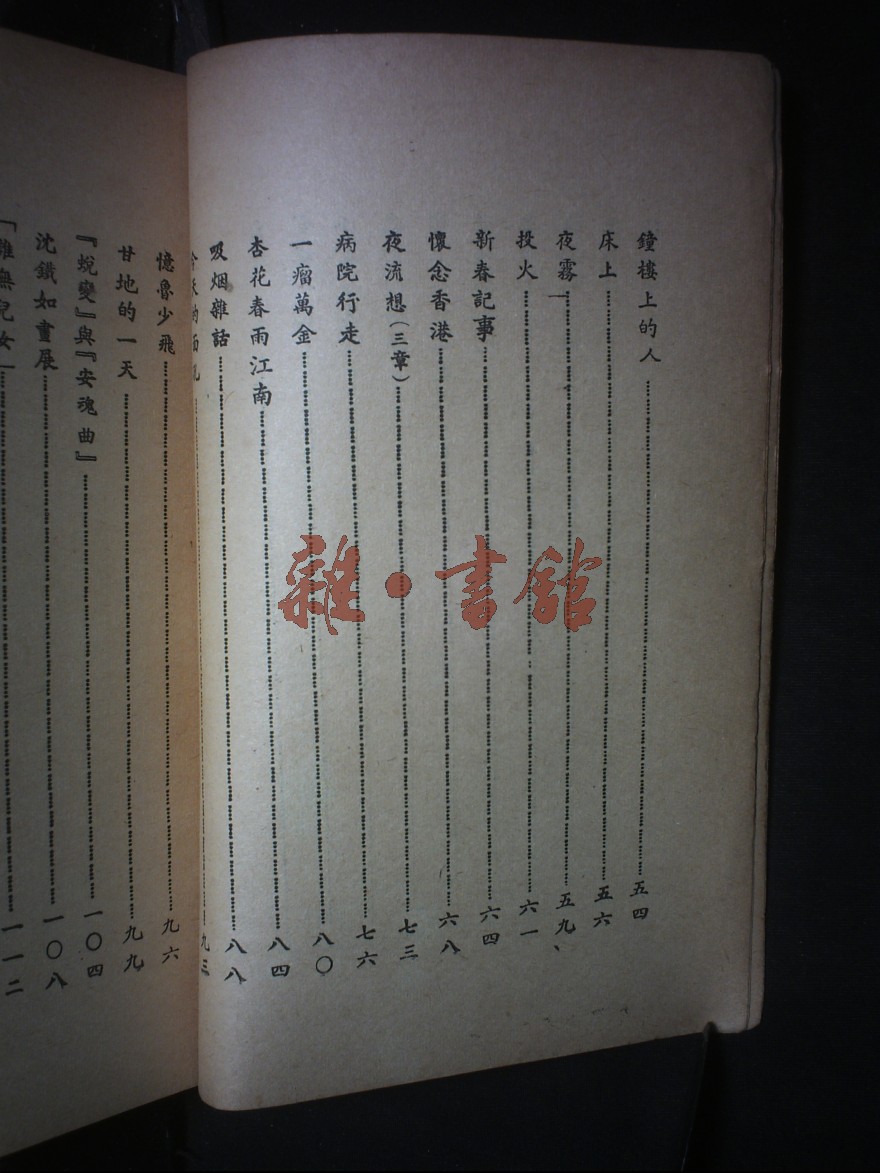 鐘樓上的人……五四
床上……五六
夜霧……五九
投火……六一
新春記事……六四
懷念香港……六八
夜流想(三章)……七三
病院行走……七六
一瘤萬金……八〇
杏花春雨江南……八四
吸烟雜話……八八
的面孔……九三
憶魯少飛……九六
甘地的一天……九九
『蛻變』與『安魂曲』……一〇四
沈鐵如畫展……一〇八
無兒女……一一二
雜·書館